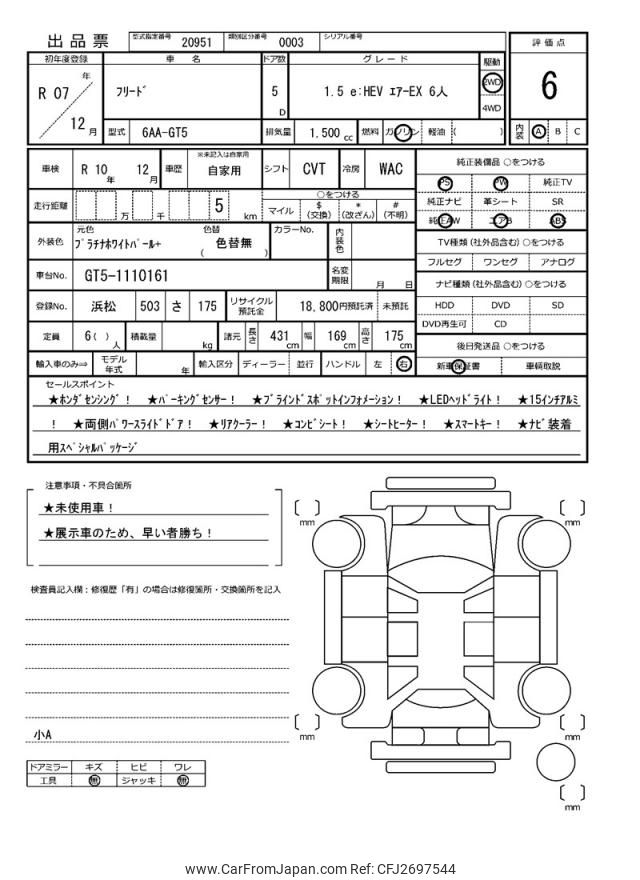 出品票
型式指定番号 20951 類別区分番号 0003 シリアル番号
初年度登録 車名 ドア数 グレード 駆動 評価点
R 07 年 12 月 フリード 5 D 1.5 e:HEV エアーEX 6人 2WD 4WD 6
型式 6AA-GT5 排気量 1,500 cc 燃料 ガソリン 軽油 ( ) 内装 A B C
車検 R 10 年 12 月 車歴 ※未記入は自家用 自家用 シフト CVT 冷房 WAC
純正装備品 ○をつける
PS PW 純正TV
純正ナビ 革シート SR
純正AW エアB ABS
走行距離 万 千 5 km ○をつける
マイル $(交換) *(改ざん) #(不明)
外装色 元色 プラチナホワイトパール+ 色替 ( 色替無 ) カラーNo. 内装色
TV種類 (社外品含む) ○をつける
フルセグ ワンセグ アナログ
車台No. GT5-1110161 名変期限 月 日
ナビ種類 (社外品含む) ○をつける
HDD DVD SD
DVD再生可 CD
登録No. 浜松 503 さ 175 リサイクル預託金 18,800円預託済 未預託
定員 6( )人 積載量 kg 諸元 長さ 431 cm 幅 169 cm 高さ 175 cm
後日発送品 ○をつける
新車保証書 車輌取説
輸入車のみ⇒ モデル年式 年 輸入区分 ディーラー 並行 ハンドル 左 右
セールスポイント
★ホンダセンシング! ★パーキングセンサー! ★ブラインドスポットインフォメーション! ★LEDヘッドライト! ★15インチアルミ
! ★両側パワースライドドア! ★リアクーラー! ★コンビシート! ★シートヒーター! ★スマートキー! ★ナビ装着
用スペシャルパッケージ
注意事項・不具合箇所
★未使用車!
★展示車のため、早い者勝ち!
検査員記入欄:修復歴「有」の場合は修復箇所・交換箇所を記入
小A
ドアミラー キズ ヒビ ワレ
工具 無 ジャッキ 無
mm
mm
mm
mm
mm
www.CarFromJapan.com Ref: CFJ2697544